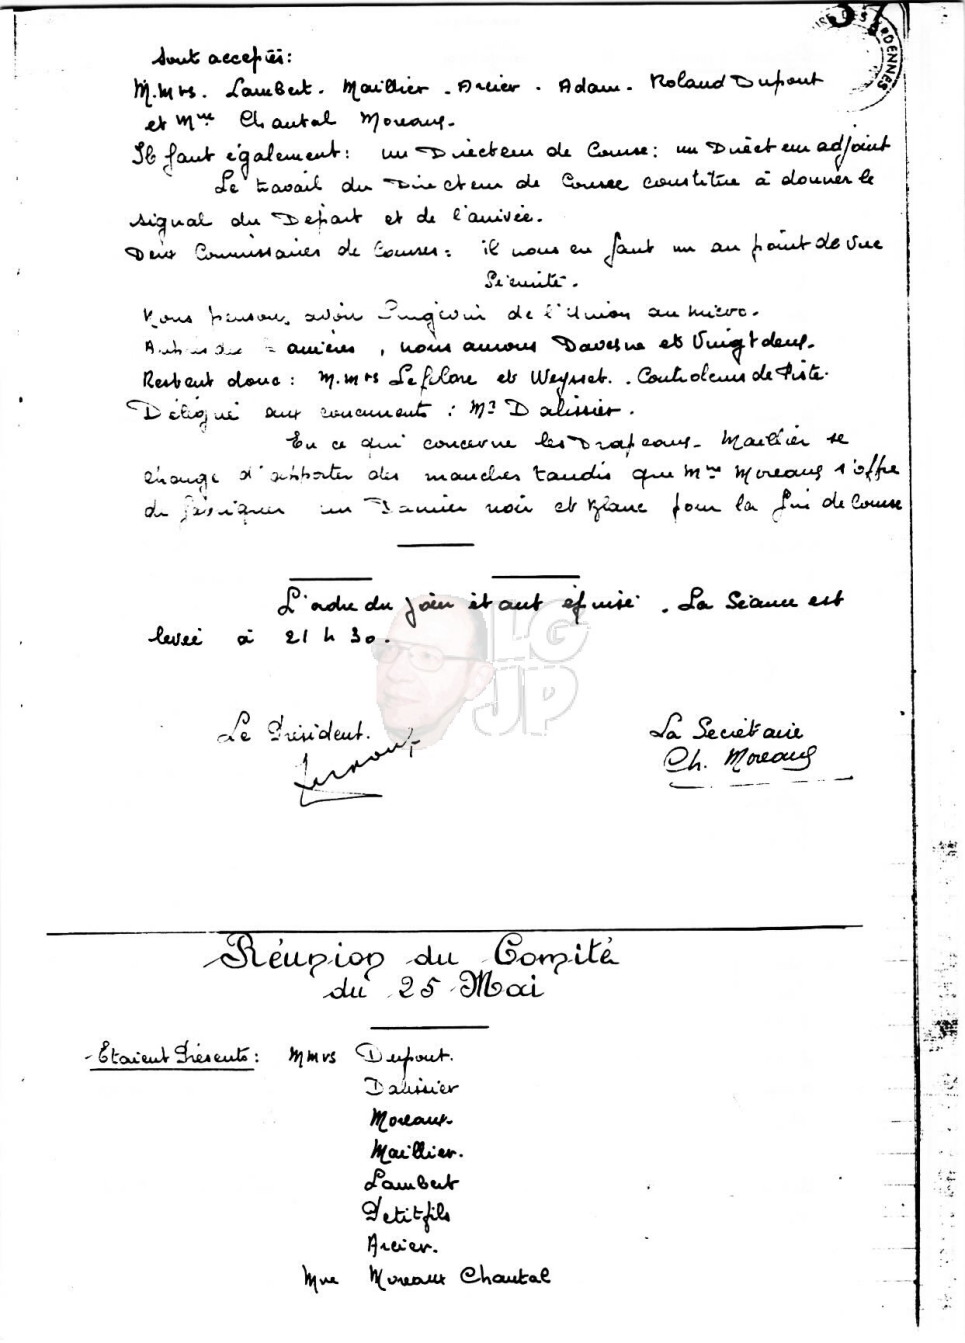 37
DES ARDENNES
sont acceptés:
M.Mrs. Lambert. Maillier. Arcier. Adam. Roland Dupont
et Mme Chantal Moreaux.
Il faut également: un Directeur de Course: un Directeur adjoint
Le travail du Directeur de Course constitue à donner le
signal du Départ et de l'arrivée.
Deux Commissaires de Courses: il nous en faut un au point de vue
Sécurité.
Nous pensons avoir de l'Union au micro.
nous aurons Davesne et Vingtdeux.
Restent donc: M.Mrs Leflore et Weysset. Controleurs de Piste.
Délégué aux concurrents: Mr Dalissier.
En ce qui concerne les Drapeaux. Maillier se
charge d'apporter des manches tandis que Mme Moreaux s'offre
de fabriquer un Damier noir et blanc pour la fin de Course
L'ordre du jour étant épuisé. La Séance est
levée à 21 h 30.
LG
JP
Le Président.
La Secrétaire
Ch. Moreaux
Réunion du Comité
du 25 Mai
Etaient Présents: MMrs Dupont.
Dalissier
Moreaux.
Maillier.
Lambert
Petitfils
Arcier.
Mme Moreaux Chantal